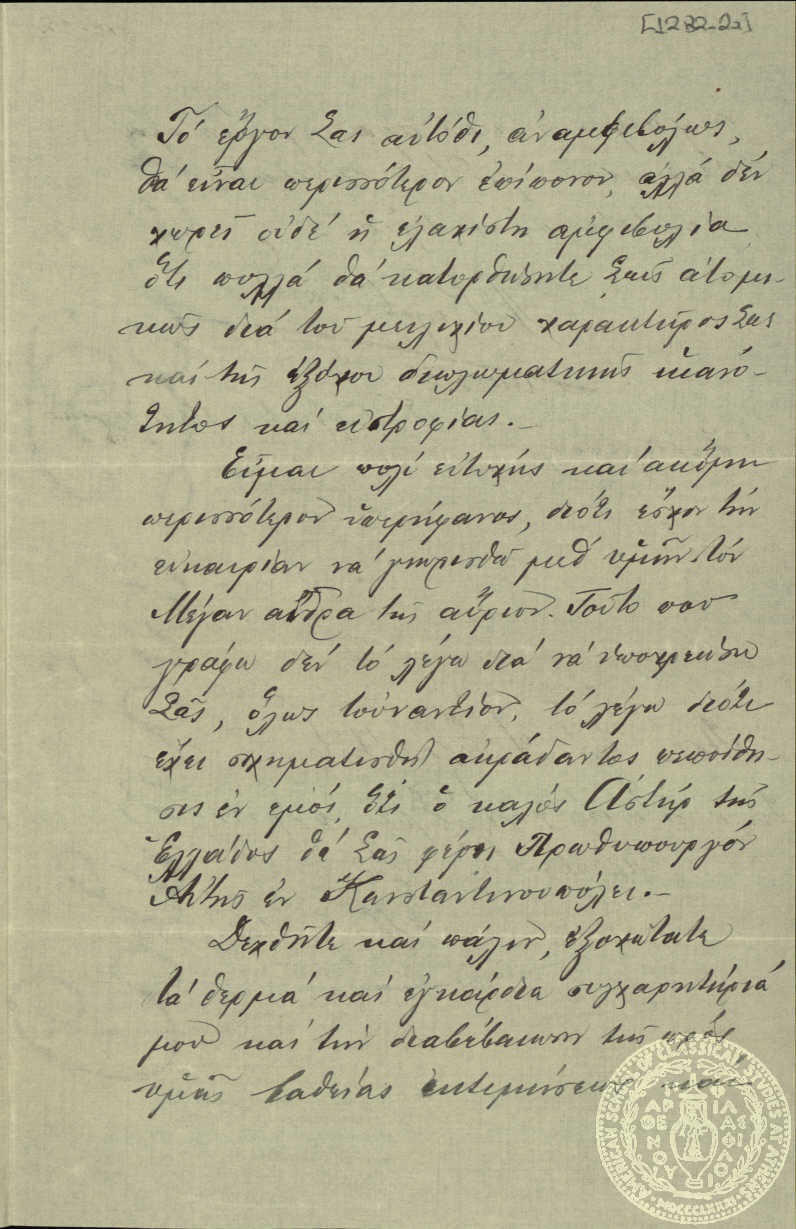 [1232-2α]
Τό ἔργον Σας αὐτόθι, ἀναμφιβόλως,
θά εἶναι περισσότερον ἐπίπονον, ἀλλά δέν
χωρεῖ οὐδέ ἡ ἐλαχίστη ἀμφιβολία
ὅτι πολλά θά κατορθώσητε Σεῖς ἀτομι-
κῶς διά τοῦ μειλιχίου χαρακτῆρος Σας
καί τῆς ἐξόχου διπλωματικῆς ἱκανό-
τητος καί εὐστροφίας.—
Εἶμαι πολύ εὐτυχής καί ἀκόμη
περισσότερον ὑπερήφανος, διότι ἔσχον τήν
εὐκαιρίαν νά γνωρισθῶ μεθ' ὑμῶν τόν
Μέγαν ἄνδρα τῆς αὔριον. Τοῦτο που
γράφω δέν τό λέγω διά νά ὑποχρεώσω
Σᾶς, ὅλως τοὐναντίον, τό λέγω διότι
ἔχει σχηματισθῆ ἀκράδαντος πεποίθη-
σις ἐν ἐμοί, ὅτι ὁ καλός Ἀστήρ τῆς
Ἑλλάδος θά Σᾶς φέρει Πρωθυπουργόν
Αὐτῆς ἐν Κωνσταντινουπόλει.—
Δεχθῆτε καί πάλιν, ἐξοχώτατε
τά θερμά καί ἐγκάρδια συγχαρητήριά
μου καί τήν διαβεβαίωσιν τῆς πρός
ὑμᾶς βαθείας ἐκτιμήσεως και
AMERICAN SCHOOL OF CLASSICAL STUDIES AT ATHENS
ΠΑΡΘΕΝΟΥ ΦΙΛΑΣ ΦΙΛΟΙ
MDCCCLXXXI